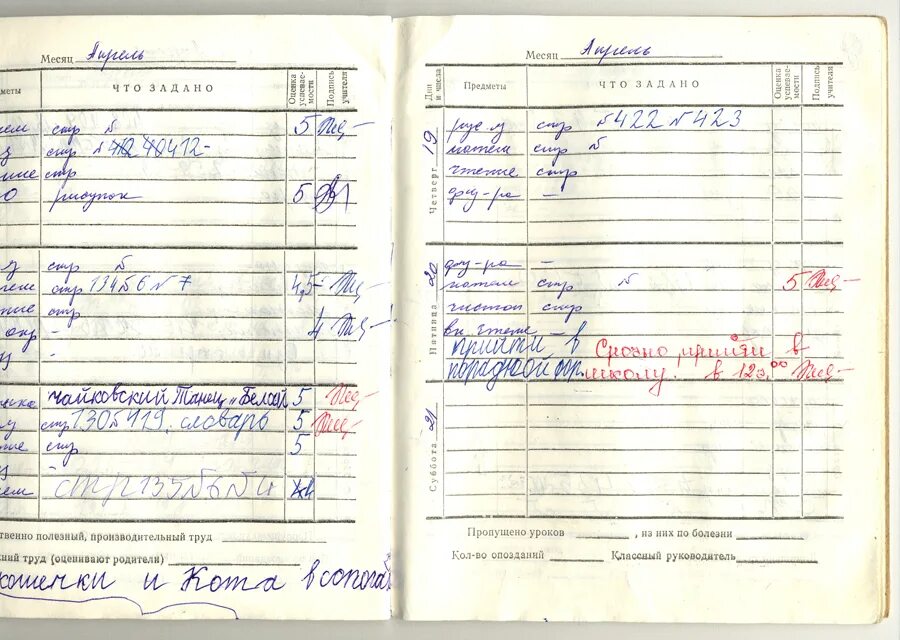 Месяц Апрель
меты ЧТО ЗАДАНО Оценка успевае- мости Подпись учителя
стр №
5
стр № 412
стр
рисунок 5
стр №
стр 134 №6 №7 4,5
стр
- 4
-
чайковский Танец "Белой 5
стр 130 №419. словарь 5
стр 5
стр 135 №6 №4
ственно полезный, производительный труд
ний труд (оценивают родители)
кошечки и Кота в сапога
Месяц Апрель
Дни и числа Предметы ЧТО ЗАДАНО Оценка успевае- мости Подпись учителя
Четверг 19
рус. яз стр №422 №423
матем стр №
чтение стр
физ-ра -
Пятница 20
физ-ра -
матем стр № 5
чистоп стр
вн. чтение
прийти в
порадной фор.
Срочно прийти в
школу. в 12ч.00
Суббота 21
Пропущено уроков , из них по болезни
Кол-во опозданий Классный руководитель